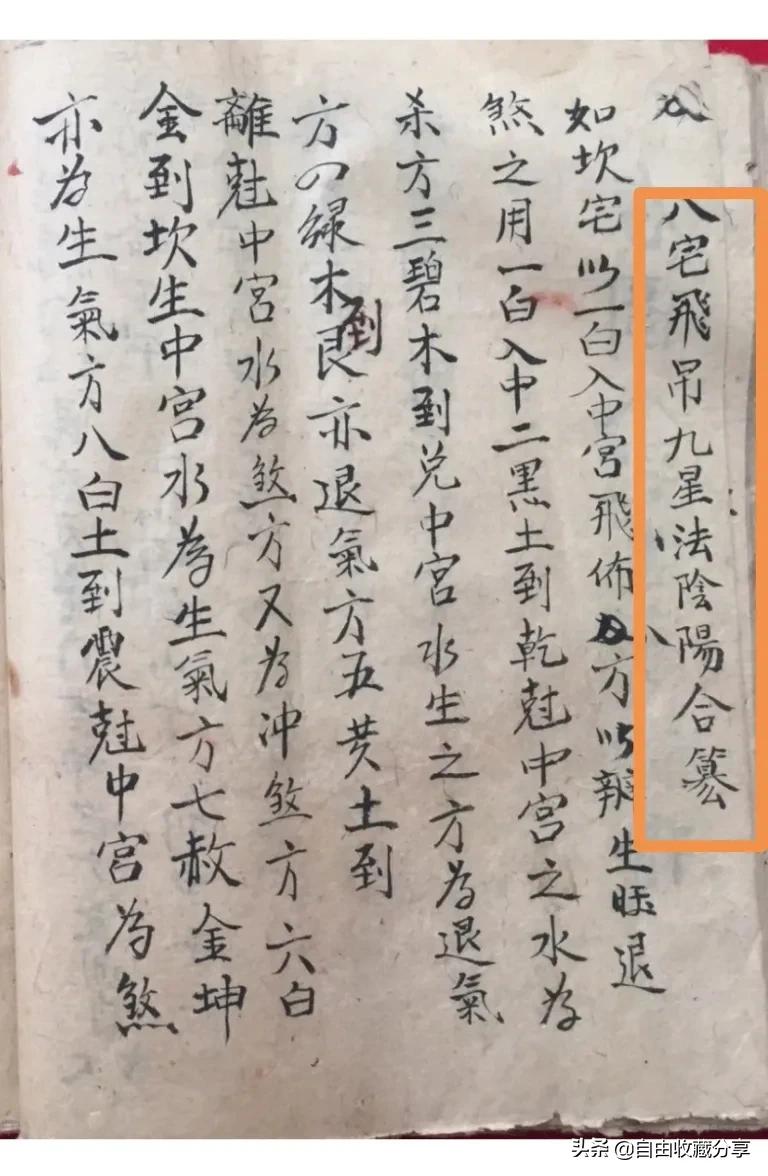 八宅飛吊九星法陰陽合纂
如坎宅以一白入中宮飛佈八方以辨生旺退
煞之用一白入中二黑土到乾尅中宮之水为
杀方三碧木到兑中宮水生之方為退氣
方四緑木到艮亦退氣方五黄土到
離尅中宮水為煞方又為沖煞方六白
金到坎生中宮水為生氣方七赦金坤
亦為生氣方八白土到震尅中宮為煞
头条 @自由收藏分享